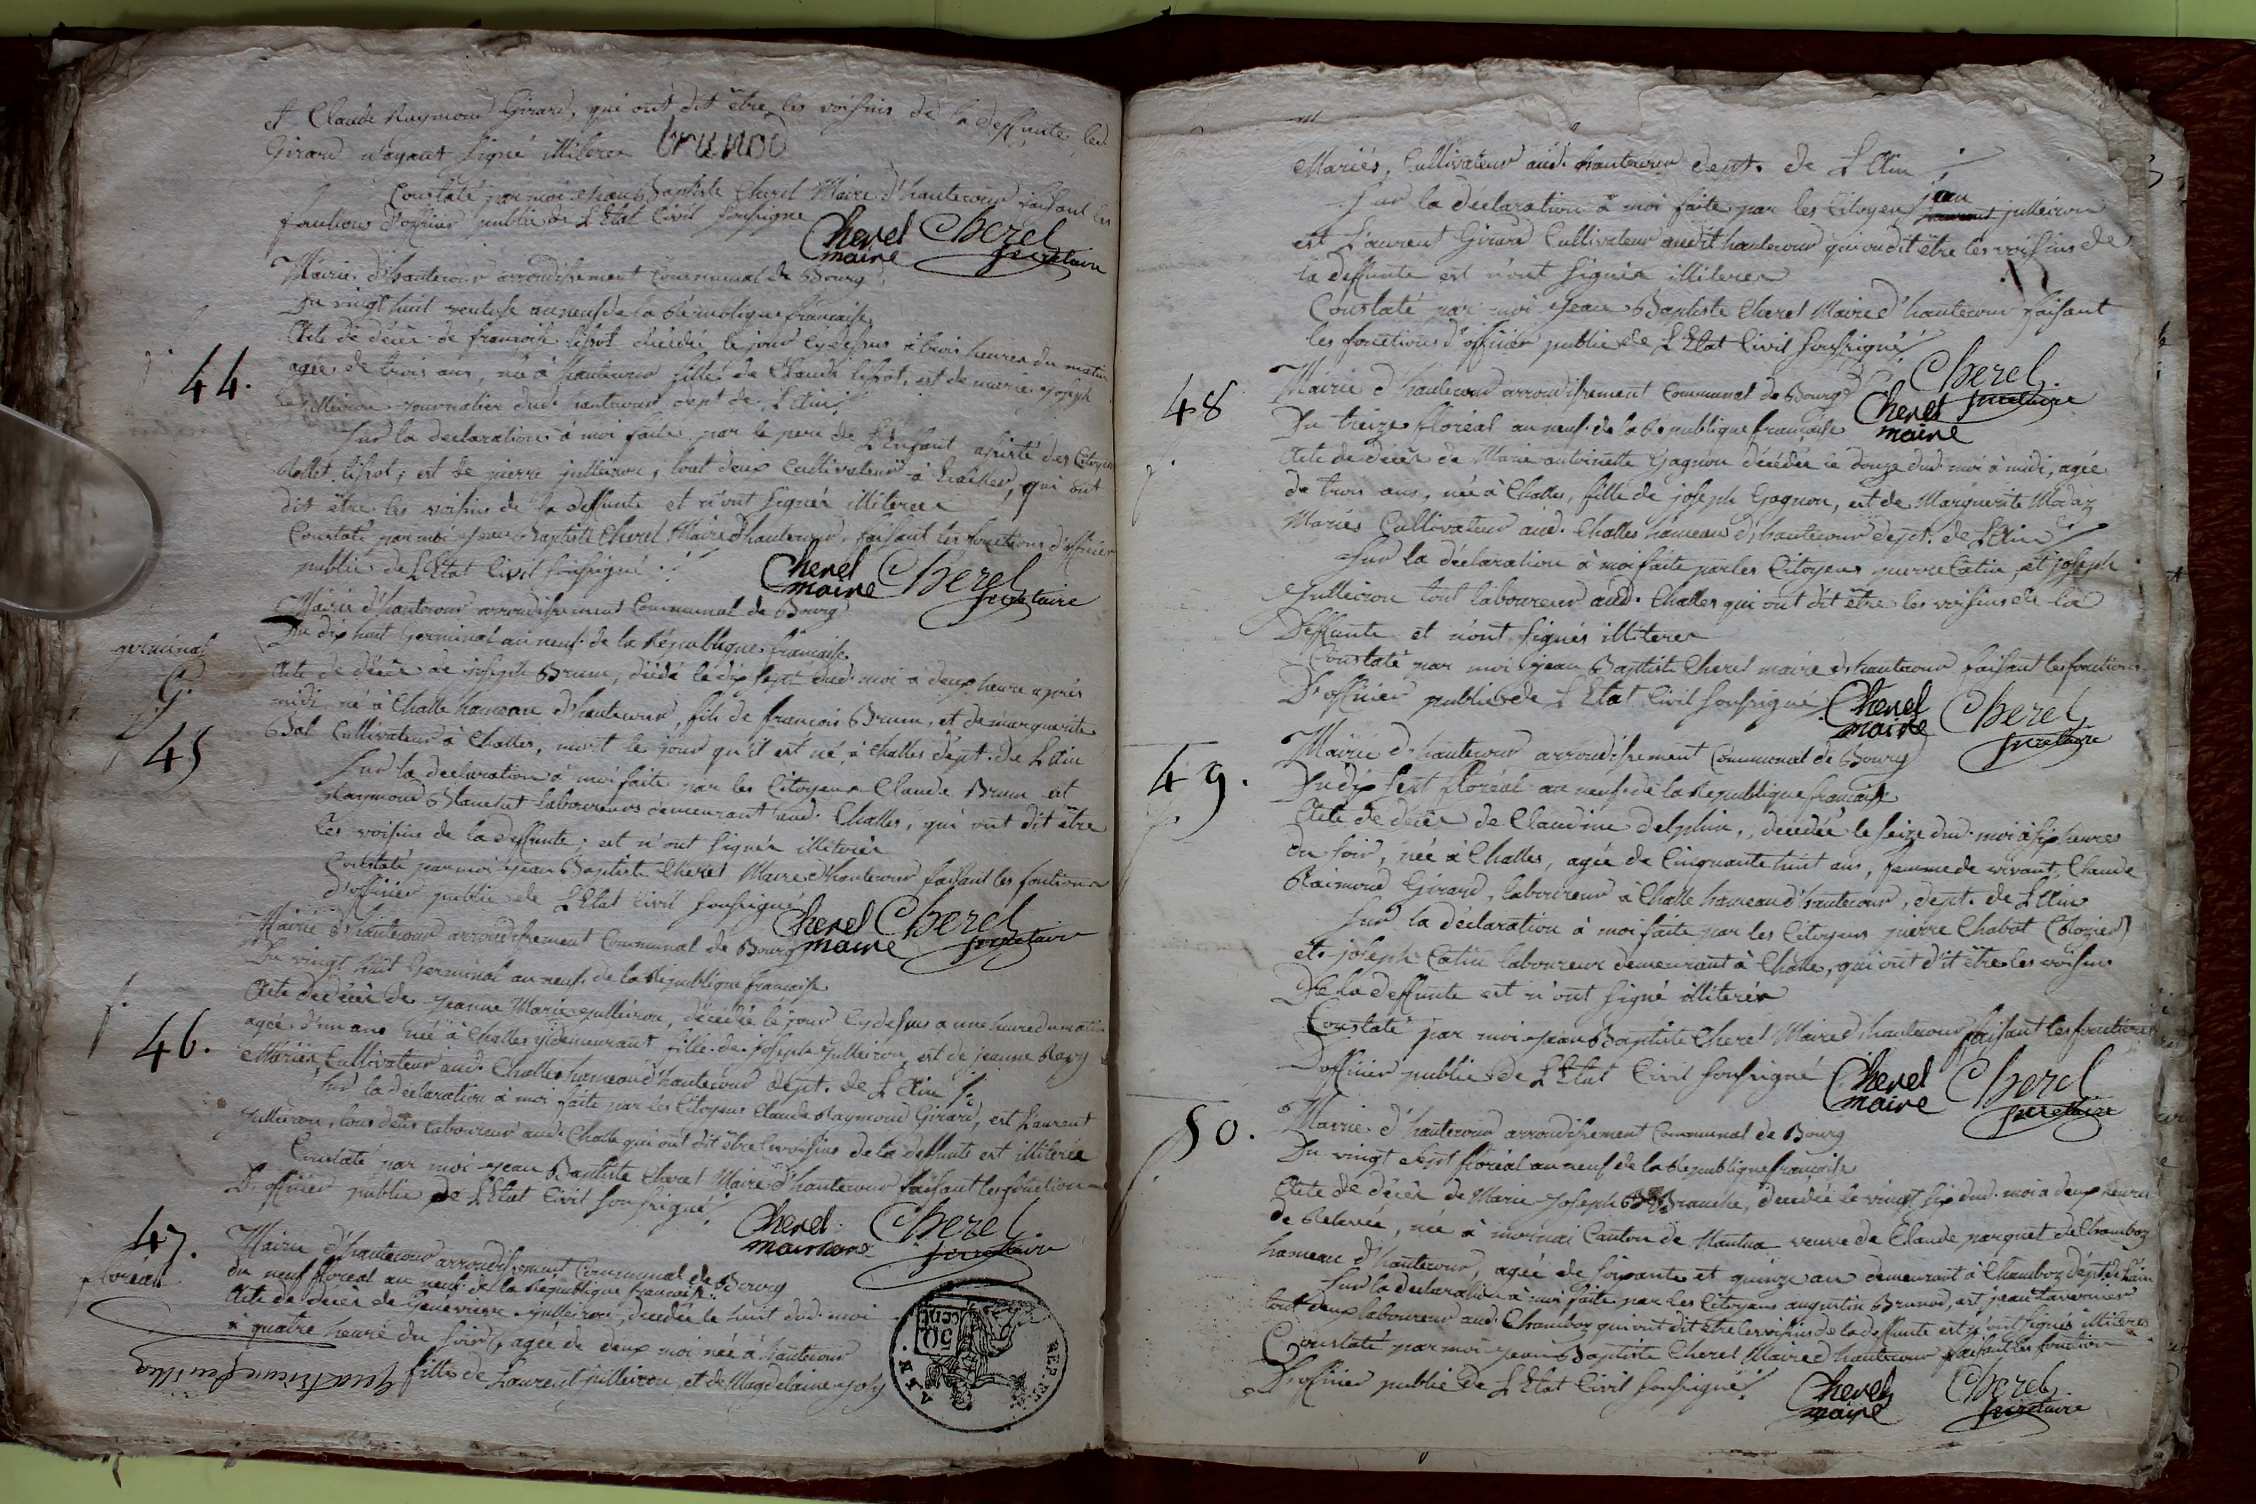 et Claude Raymond Girard, qui ont dit être les voisins de la deffunte, led.
Girard n'ayant signé illiterer brunod
Constaté par moi Jean Baptiste Cherel Maire d'hautecour faisant les
fonctions d'officier public de L'Etat Civil soussigné
Cherel maire Cherel secretaire
Mairie d'hautecour arrondissement Communal de Bourg
Du vingt huit ventose an neuf de la République francaise
44.
Acte de décès de francoise lissot décédée le jour cy dessus à trois heures du matin
agée de trois ans, née à hautecour fille de Claude lissot, et de marie joseph
Jullieron journalier dud. hautecour dept de L'Ain
Sur la declaration à moi faite par le pere de L'Enfant assisté des Citoyens
lissot, et de pierre jullieron, tout deux Cultivateurs à qui ont
dit être les voisins de la deffunte et n'ont signés illiterer
Constaté par moi Jean Baptiste Cherel Maire d'hautecour, faisant les fonctions d'officier
public de L'Etat Civil soussigné
Cherel maire Cherel secretaire
Mairie d'hautecour arrondissement Communal de Bourg
Du dix huit Germinal an neuf de la République francaise
germinal
G.
45
Acte de décès de joseph Brun, décédé le dix sept dud. moi à deux heure après
midi, né à Challe hameau d'hautecour, fils de francois Brun, et de marguerite
Bal Cultivateur à Challes, mort le jour qu'il est né à Challes dept. de L'Ain
Sur la declaration à moi faite par les Citoyens Claude Brun et
Raymond Blanchet laboureurs demeurant aud. Challes, qui ont dit être
les voisins de la deffunte; et n'ont signés illiterer
Constaté par moi Jean Baptiste Cherel Maire d'hautecour faisant les fontions
d'officier public de L'Etat Civil soussigné
Cherel maire Cherel secretaire
Mairie d'hautecour arrondissement Communal de Bourg
Du vingt huit Germinal an neuf de la République francaise
46.
Acte de décès de Jeanne Marie Jullieron, décédée le jour cy dessus a une heure du matin
agée d'un ans née à Challes y demeurant fille de joseph Jullieron et de jeanne Ravy
Mariés, Cultivateur aud. Challes hameau d'hautecour dept. de L'Ain
Sur la declaration à moi faite par les Citoyens Claude Raymond Girard, et Laurent
Jullieron, tous deux laboureurs aud. Challe qui ont dit être les voisins de la deffunte et illiterés
Constaté par moi Jean Baptiste Cherel Maire d'hautecour faisant les fonction
D'officier public de L'Etat Civil soussigné
Cherel maire Cherel secretaire
47.
floréal
Mairie d'hautecour arrondissement Communal de Bourg
Du neuf floréal an neuf de la République francaise
Acte de décès de Genevieve Jullieron, décédée le huit dud. moi
à quatre heure du soir, agée de deux moi née à hautecour
fille de Laurent Jullieron, et de Magdelaine joly
quatrieme feuillet
AIN. 50 cent REP. FRA.
Mariés, Cultivateur aud. hautecour dept. de L'Ain
Sur la declaration à moi faite par les Citoyens jean jullieron
et Laurent Girard Cultivateur audit hautecour qui on dit être les voisins de
la deffunte et n'ont signés illiterer
Constaté par moi Jean Baptiste Cherel Maire d'hautecour faisant
les fonctions d'officier public de L'Etat Civil soussigné
Cherel secretaire
Cherel maire
48
Mairie d'hautecour arrondissement Communal de Bourg
Du treize floréal an neuf de la République francaise
Acte de décès de Marie antoinette Gagnon décédée le douze dud. moi à midi, agée
de trois ans, née à Challes, fille de joseph Gagnon, et de Marguerite Modaz
Mariés Cultivateur aud. Challes hameau d'hautecour dept. de L'Ain
Sur la déclaration à moi faite par les Citoyens pierre Catin, et joseph
Jullieron tout laboureur aud. Challes qui ont dit être les voisins de la
Deffunte et n'ont signés illiterer
Constaté par moi Jean Baptiste Cherel maire d'hautecour faisant les fonctions
D'officier public de L'Etat Civil soussigné
Cherel maire Cherel secretaire
49.
Mairie d'hautecour arrondissement Communal de Bourg
Du dix sept floréal an neuf de la République francaise
Acte de décès de Claudine delphin, décédée le seize dud. moi à six heures
du soir, née à Challes, agée de Cinquante huit ans, femme de vivant, Claude
Raimond Girard, laboureur à Challe hameau d'hautecour, dept. de L'Ain
Sur la déclaration à moi faite par les Citoyens pierre Chabot
et joseph Catin laboureur demeurant à Challe, qui ont dit être les voisins
De la deffunte et n'ont signé illiterés
Constaté par moi Jean Baptiste Cherel Maire d'hautecour faisant les fonctions
D'officier public de L'Etat Civil soussigné
Cherel maire Cherel secretaire
50.
Mairie d'hautecour arrondissement Communal de Bourg
Du vingt sept floréal an neuf de la République francaise
Acte de décès de Marie Joseph Branche, décédée le vingt six dud. moi a deux heures
de Relevée, née à mornai Canton de Nantua veuve de Claude parquet de Chamboz
hameau d'hautecour, agée de soixante et quinze an demeurant à Chamboz dept. de L'ain
Sur la declaration à moi faite par les Citoyens augustin Brunod, et jean tavernier
tout deux laboureur aud. Chamboz qui ont dit être les voisins de la deffunte et n'ont signés illiterés
Constaté par moi Jean Baptiste Cherel Maire d'hautecour faisant les fonction
D'officier public de L'Etat Civil soussigné
Cherel maire Cherel secretaire